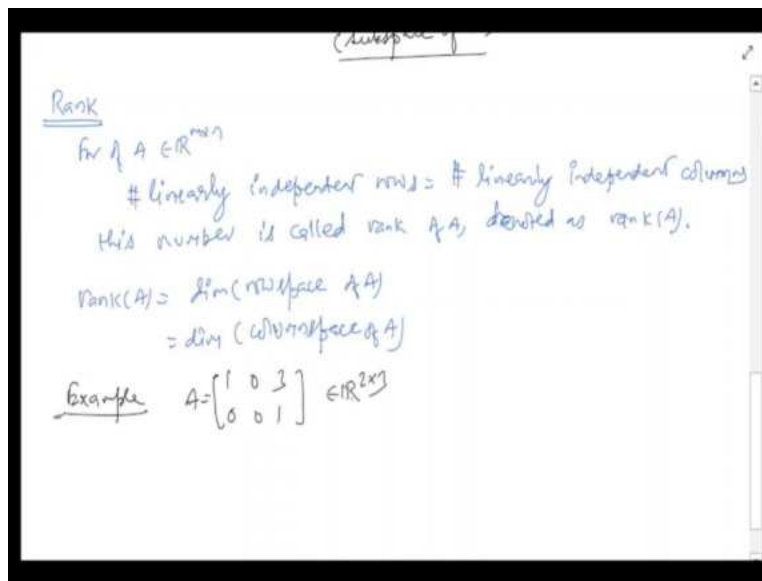 (subspace of
Rank
For of A ∈ ℝ^{m×n}
# linearly independent rows = # linearly independent columns
this number is called rank of A, denoted as rank(A).
rank(A) = dim(rowspace of A)
= dim (columnspace of A)
Example A = [1 0 3
0 0 1] ∈ ℝ^{2×3}